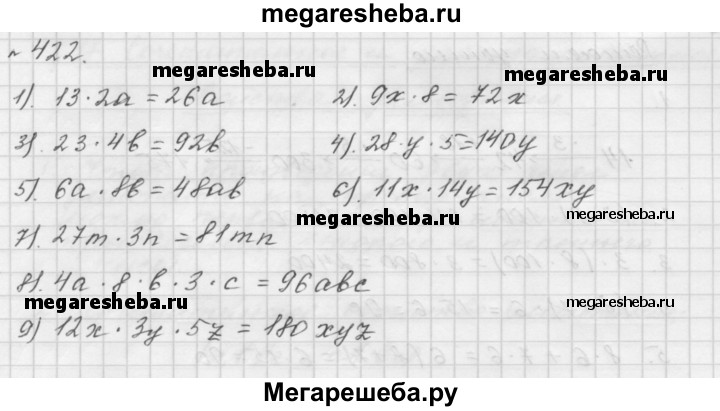 megaresheba.ru
№ 422.
megaresheba.ru
1). 13 · 2a = 26a 2). 9x · 8 = 72x
3). 23 · 4b = 92b 4). 28 · y · 5 = 140y
5). 6a · 8b = 48ab 6). 11x · 14y = 154xy
megaresheba.ru
7). 27m · 3n = 81mn
8). 4a · 8 · b · 3 · c = 96abc
megaresheba.ru megaresheba.ru
9) 12x · 3y · 5z = 180xyz
Мегарешеба.ру